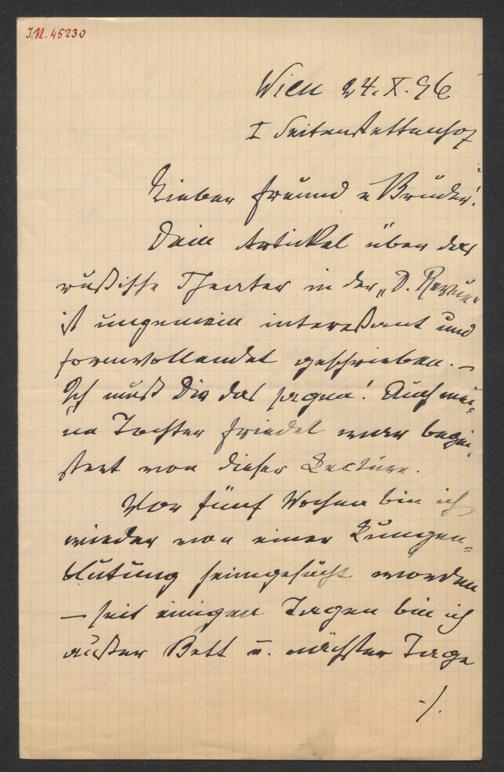 I.N. 45230
Wien 24. X. 96
I Seitenstettenhof
Lieber Freund u Bruder!
Dein Artikel über das
russische Theater in der „D. Revue"
ist ungemein interessant und
formvollendet geschrieben. –
Ich muß Dir das sagen! Auch mei-
ne Tochter Friedel war begei-
stert von dieser Lectüre.
Vor fünf Wochen bin ich
wieder von einer Lungen-
blutung heimgesucht worden
– seit einigen Tagen bin ich
außer Bett u. nächster Tage
./.